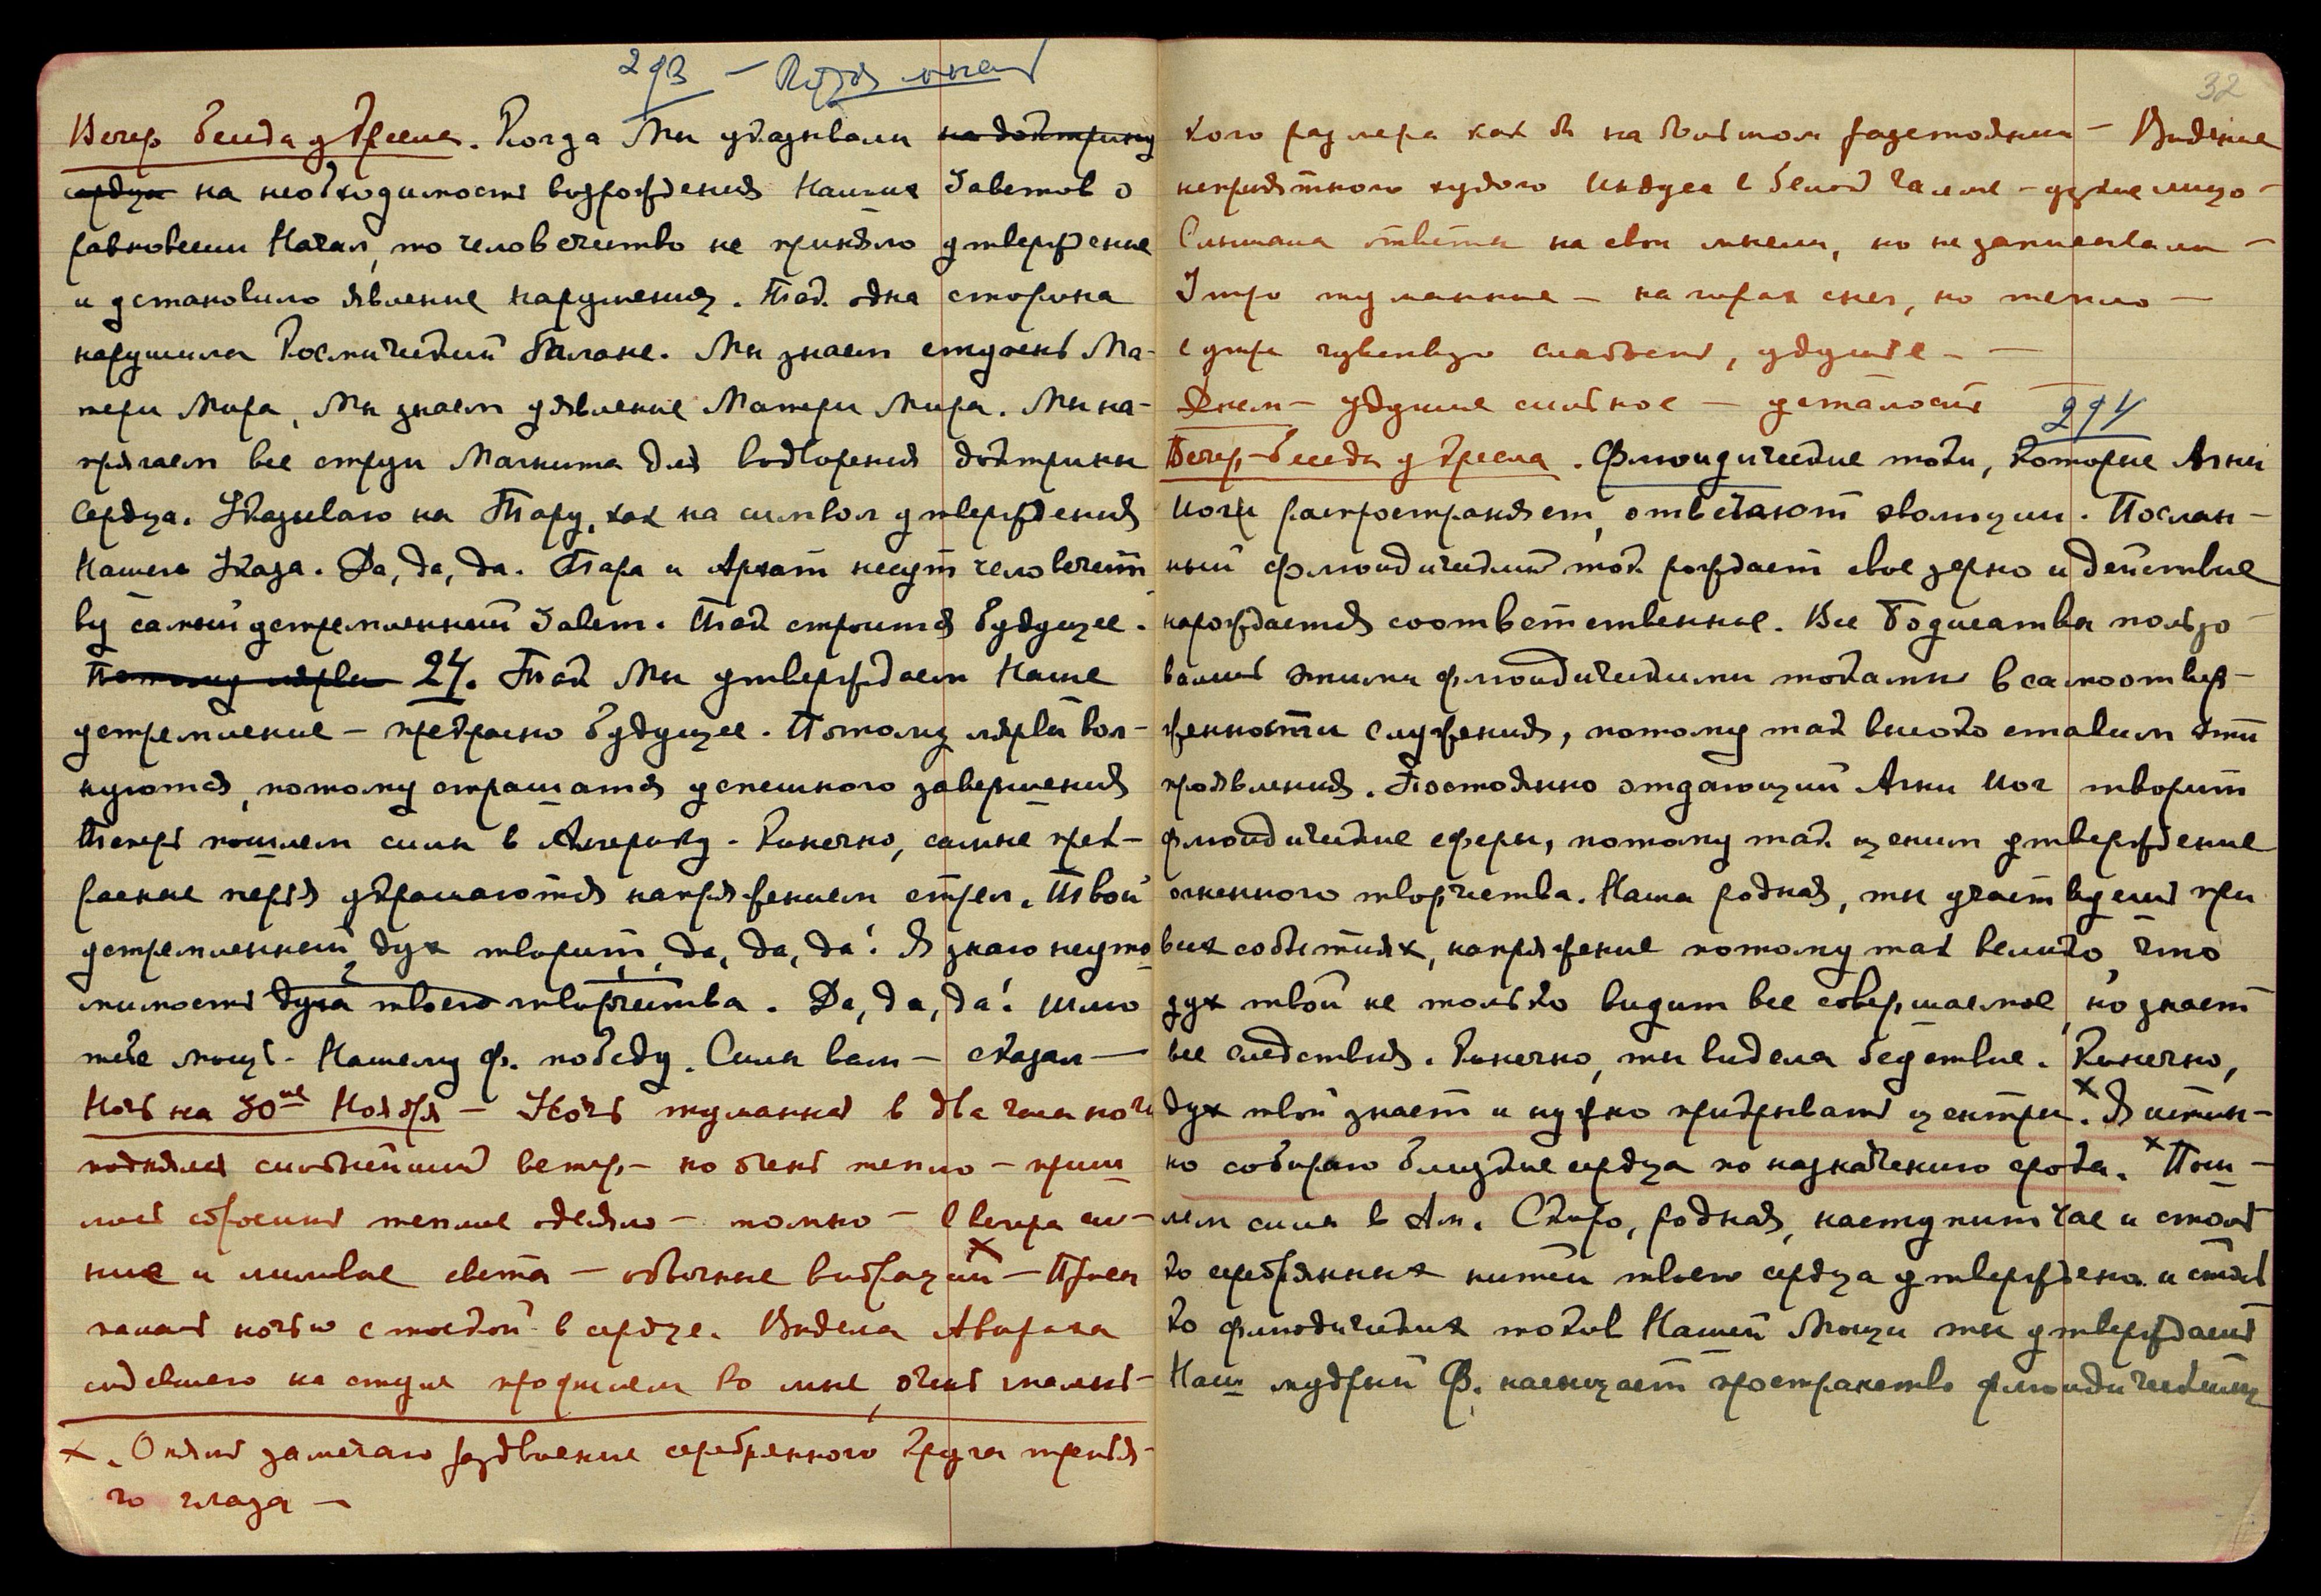 293 –
Вечер беседа у Кресла. Когда Мы указывали на доктрину
сердца на необходимость возрождения Наших Заветов о
равновесии Начал, то человечество не приняло утверждение
и установило явление нарушения. Так одна сторона
нарушила Космический баланс. Мы знаем ступень Ма-
тери Мира, Мы знаем явление Матери Мира. Мы на-
прягаем все струи Магнита для водворения доктрины
Сердца. Указываю на Тару, как на символ утверждения
Нашего Указа. Да, да, да. Тара и Архат несут человечест
ву самый устремленный Завет. Так строится будущее.
Потому 24. Так Мы утверждаем Наше
устремление – прекрасно будущее. Потому лярвы вол-
нуются, потому страшатся успешного завершения
Теперь пошлем силы в Америку. Конечно, самые прек-
расные перья украшаются напряжением стрел. Твой
устремленный дух творит, да, да, да! Я знаю неуто
мимость духа твоего творчества. Да, да, да! Шлю
тебе мощь. Нашему Ф. победу. Силы вам – сказал –
Ночь на 30ое Ноября – Ночь туманная в два часа ночи
поднялся сильнейший ветер – но очень тепло – приш
лось сбросить теплое одеяло – – С вечера си-
ние и лиловые света – обычные вибрации x –
ночью с тоской в сердце. Видела Авираха
сидевшего на стуле профилем ко мне, очень малень-
x. Опять замечаю раздвоение серебряного Круга третья-
го глаза –
32
кого размера как бы на большом расстоянии – Видение
неприятного худого Индуса в белой Чалме – узкое лицо –
Слышала ответы на свои мысли, но не записывала –
Утро туманное – на горах снег, но тепло –
С утра чувствую слабость, удушье – –
Днем – удушие сильное – усталость
294
Вечер – беседа у Кресла. Флюидические токи, которые Агни
Йоги распространяет, отвечают эволюции. Послан-
ный флюидический ток рождает свое зерно и действие
нарождается соответственное. Все Бодисатвы пользо
вались этими флюидическими токами в самоотвер-
женности служения, потому так высоко ставим эти
проявления. Постоянно отдающий Агни Йог творит
флюидические сферы, потому так ценим утверждение
огненного творчества. Наша родная, ты участвуешь при
всех событиях, напряжение потому так велико, что
дух твой не только видит все совершаемое, но знает
все следствия. Конечно, ты видела бедствие. Конечно,
дух твой знает и нужно прикрывать центры. x Я истин-
но собираю близкие сердца по назначению срока. x Пош-
лем силы в Ам. Скоро, родная, наступит час и столь
ко серебрянных нитей твоего сердца утверждено и столь
ко флюидических токов Нашей Мощи ты утверждаешь
Наш мудрый Ф. насыщает пространство флюидическими